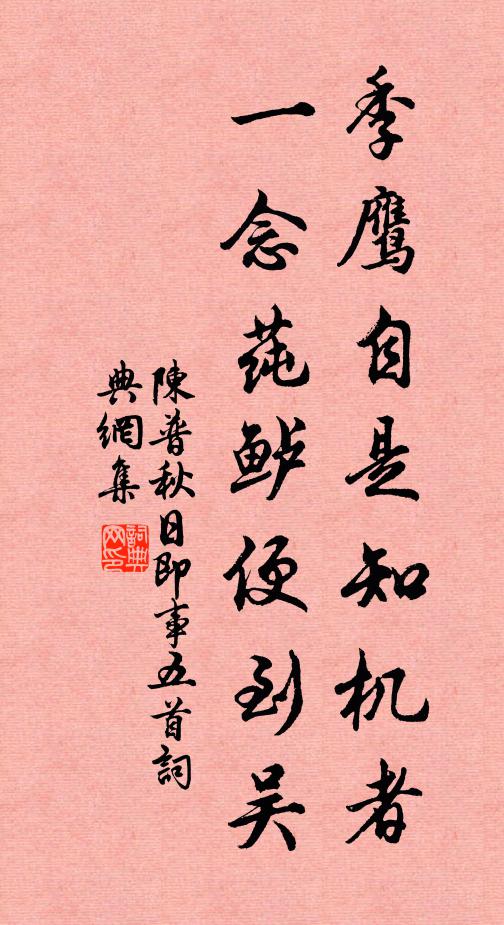 季鹰自是知机者
一念莼鲈便到吴
陳普秋日即事五首詞
典網集
詞典网印